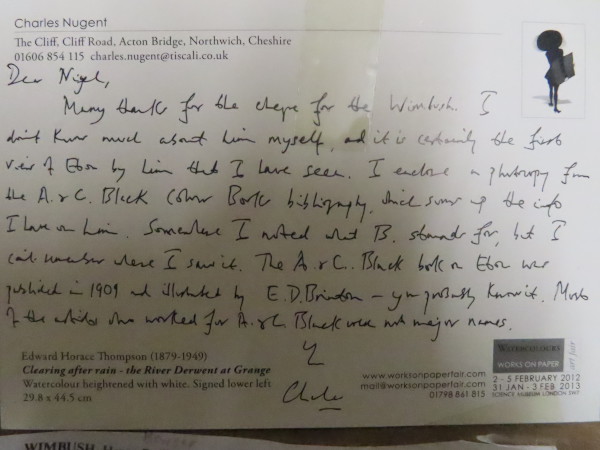 Charles Nugent
The Cliff, Cliff Road, Acton Bridge, Northwich, Cheshire
01606 854 115 charles.nugent@tiscali.co.uk
Dear Nigel,
Many thanks for the cheque for the Wimbush. I
don't know much about him myself, and it is certainly the first
view of Eton by him that I have seen. I enclose a photocopy from
the A. & C. Black Colour Books bibliography, which sums up the info
I have on him. Somewhere I noted what B. stands for, but I
can't remember where I saw it. The A. & C. Black book on Eton was
published in 1909 and illustrated by E.D. Brinton – you probably know it. Most
of the artists who worked for A. & C. Black were not major names.
Charles
Edward Horace Thompson (1879-1949)
Clearing after rain - the River Derwent at Grange
Watercolour heightened with white. Signed lower left
29.8 x 44.5 cm
www.worksonpaperfair.com
mail@worksonpaperfair.com
01798 861 815
WATERCOLOURS
WORKS ON PAPER
2 - 5 FEBRUARY 2012
31 JAN - 3 FEB 2013
SCIENCE MUSEUM LONDON SW7
WIMBUSH